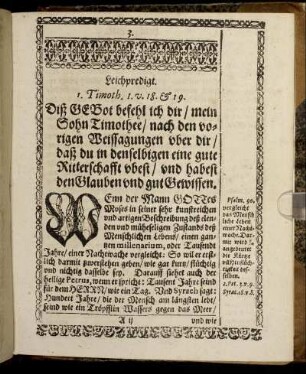 3.
Leichpredigt.
1. Timoth. 1. v. 18. & 19.
Diß GEBot befehl ich dir / mein
Sohn Timothee / nach den vo-
rigen Weissagungen vber dir /
daß du in denselbigen eine gute
Ritterschafft vbest / vnd habest
den Glauben vnd gut Gewissen.
WEnn der Mann GOTTes
Moses in seiner sehr kunstreichen
vnd artigen Beschreibung deß elen-
den vnd mühseligen Zustands deß
Menschlichen Lebens / einen gan-
tzen millenarium, oder Tausendt
Jahre / einer Nachtwache vergleicht: So wil er erst-
lich darmit zuverstehen geben / wie gar kurtz / flüchtig
vnd nichtig dasselbe sey. Darauff siehet auch der
heilige Petrus, wenn er spricht: Tausent Jahre seind
für dem HERRN / wie ein Tag. Vnd Syrach sagt:
Hundert Jahre / die der Mensch am längsten lebt /
seind wie ein Tröpfflin Wassers gegen das Meer /
A ij
vnd wie
Psalm. 90.
vergleicht
das Mensch
liche Leben
einer Nacht-
wache. Da-
mit wird
angedeutet
die Kürtze
desselben.
2. Pet. 3. v. 9.
Syrac. 18. v. 8.